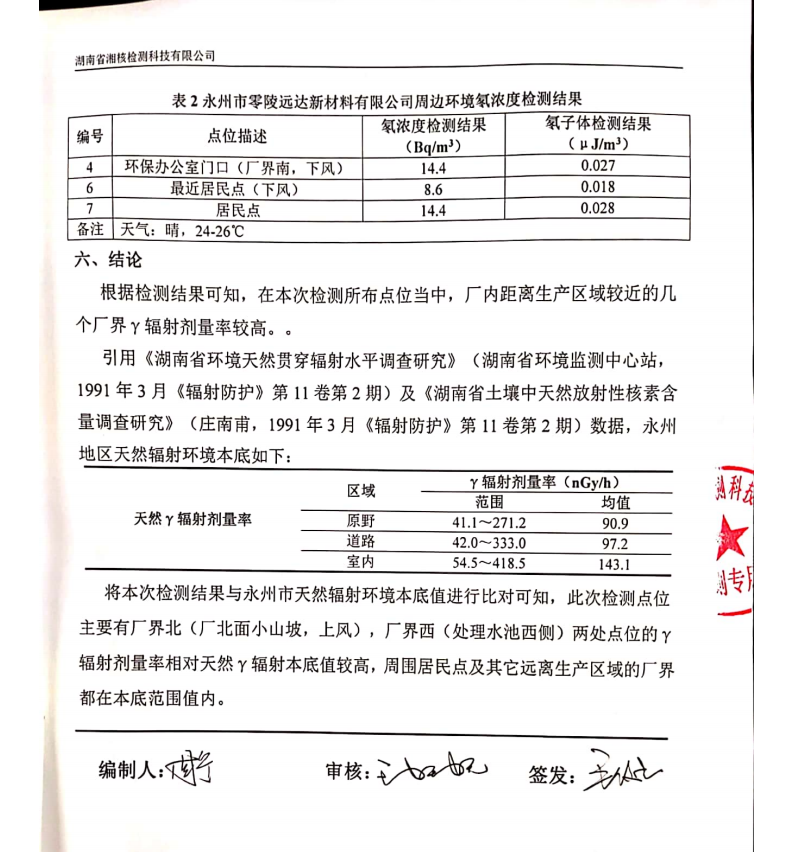 湖南省湘核检测科技有限公司
表 2 永州市零陵远达新材料有限公司周边环境氡浓度检测结果
编号 点位描述 氡浓度检测结果（Bq/m³） 氡子体检测结果（μJ/m³）
4 环保办公室门口（厂界南，下风） 14.4 0.027
6 最近居民点（下风） 8.6 0.018
7 居民点 14.4 0.028
备注 天气：晴，24-26℃
六、结论
根据检测结果可知，在本次检测所布点位当中，厂内距离生产区域较近的几
个厂界 γ 辐射剂量率较高。。
引用《湖南省环境天然贯穿辐射水平调查研究》（湖南省环境监测中心站，
1991 年 3 月《辐射防护》第 11 卷第 2 期）及《湖南省土壤中天然放射性核素含
量调查研究》（庄南甫，1991 年 3 月《辐射防护》第 11 卷第 2 期）数据，永州
地区天然辐射环境本底如下：
区域 γ 辐射剂量率（nGy/h）
范围 均值
天然 γ 辐射剂量率
原野 41.1～271.2 90.9
道路 42.0～333.0 97.2
室内 54.5～418.5 143.1
将本次检测结果与永州市天然辐射环境本底值进行比对可知，此次检测点位
主要有厂界北（厂北面小山坡，上风），厂界西（处理水池西侧）两处点位的 γ
辐射剂量率相对天然 γ 辐射本底值较高，周围居民点及其它远离生产区域的厂界
都在本底范围值内。
编制人： 审核： 签发：
科技
测专用